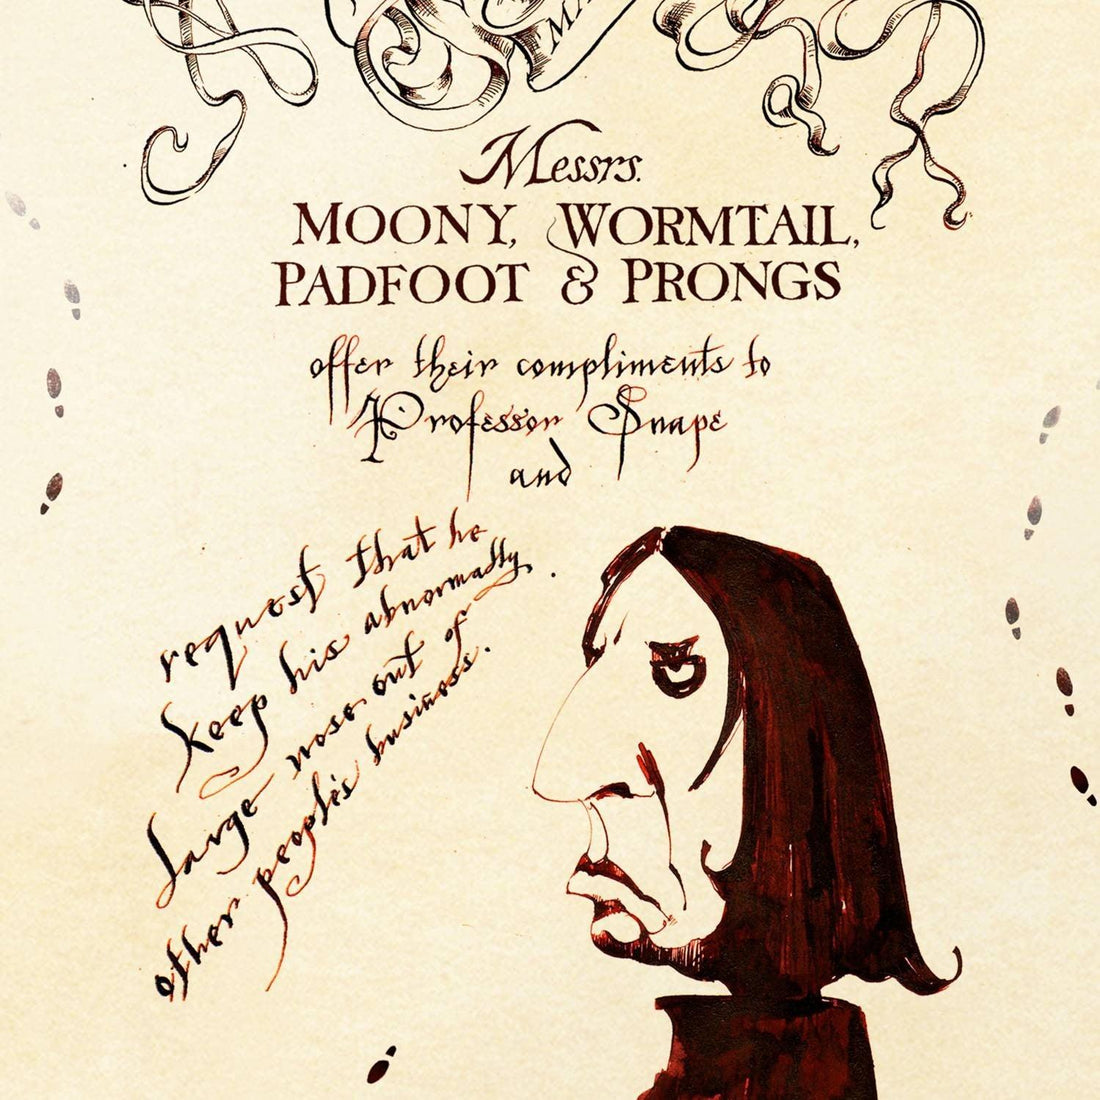 MA
Messrs.
MOONY, WORMTAIL,
PADFOOT & PRONGS
offer their compliments to
Professor Snape
and
request that he
keep his abnormally
large nose out of
other people's business.